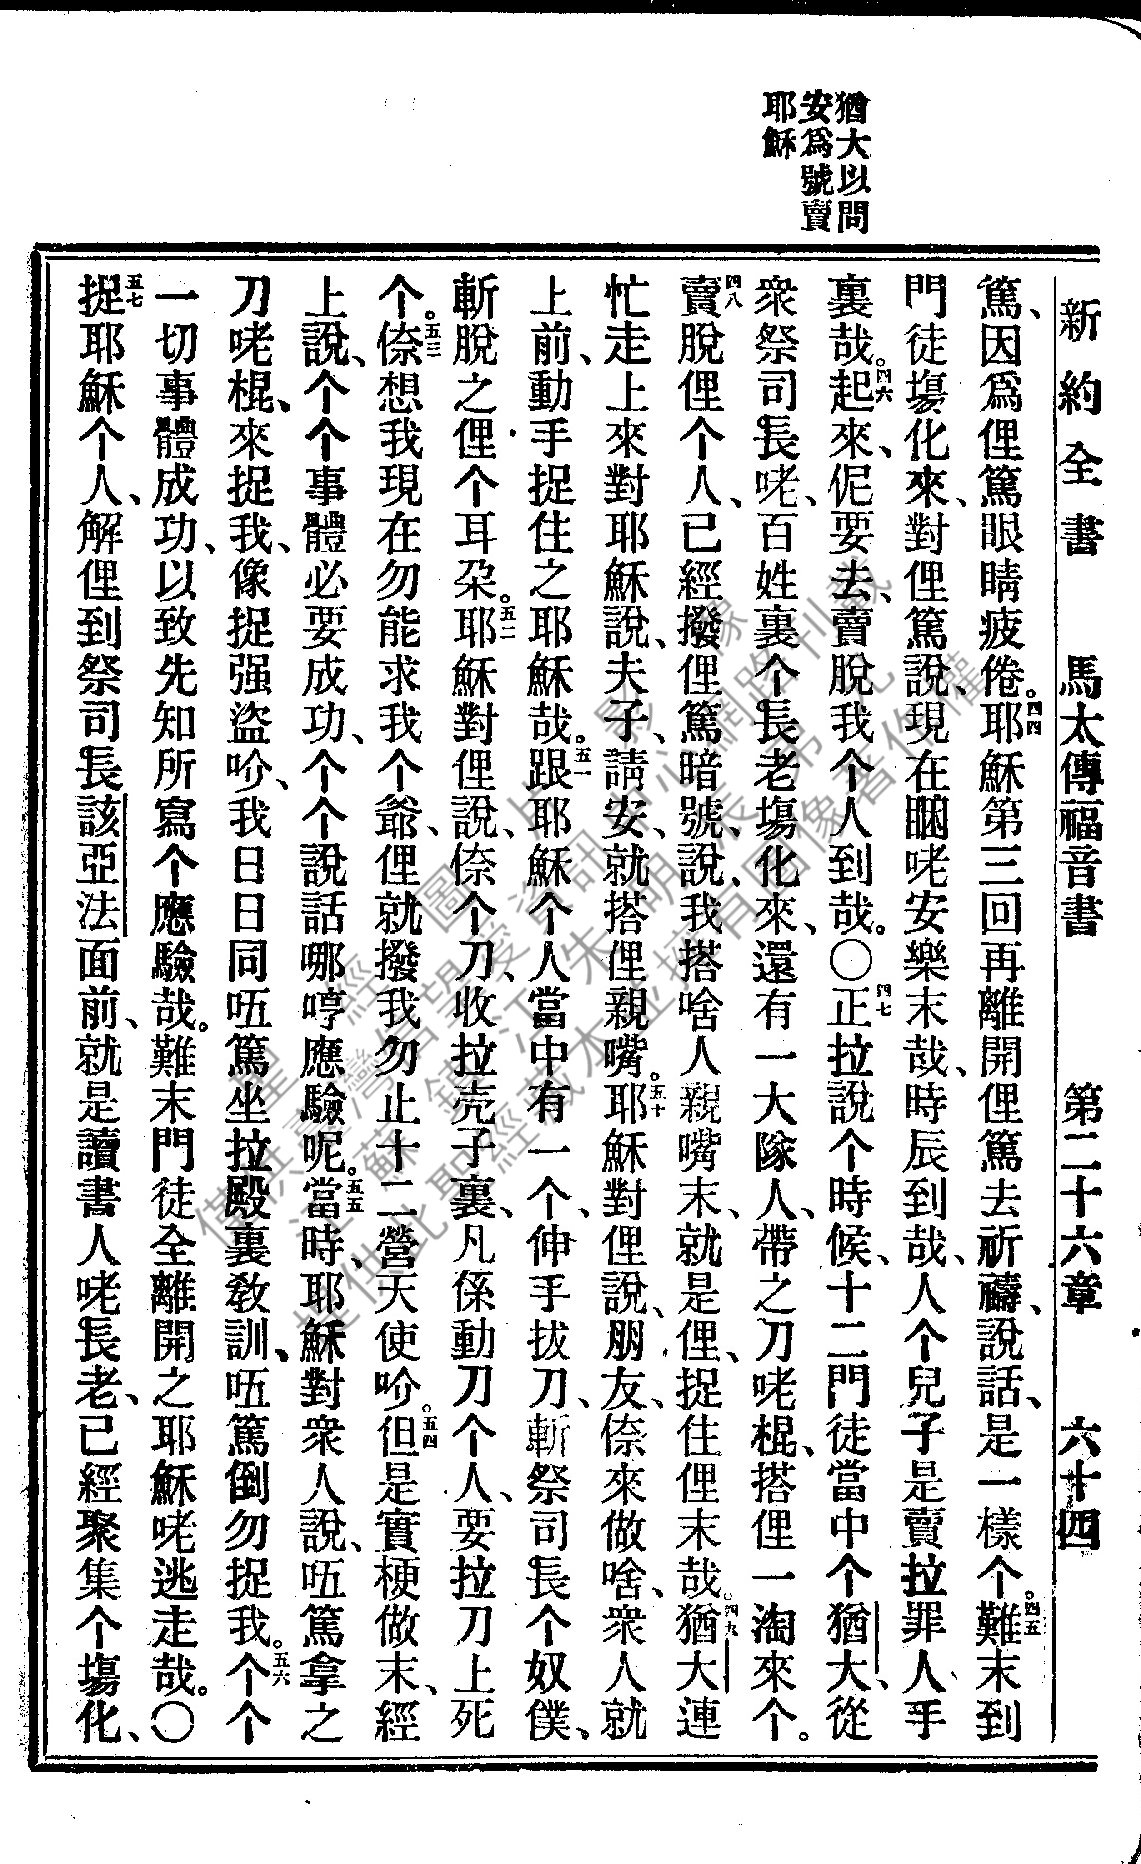 猶大以問
安爲號賣
耶穌
新約全書 馬太傳福音書 第二十六章 六十四
篤、因爲俚篤眼睛疲倦。四四耶穌第三回再離開俚篤去祈禱、說話、是一樣个。四五難末到
門徒塲化來、對俚篤說、現在睏咾安樂末哉、時辰到哉、人个兒子是賣拉罪人手
裏哉。四六起來、伲要去、賣脫我个人到哉。〇四七正拉說个時候、十二門徒當中个猶大、從
衆祭司長咾、百姓裏个長老塲化來、還有一大隊人、帶之刀咾棍、搭俚一淘來个。
四八賣脫俚个人、已經撥俚篤暗號、說、我搭啥人親嘴末、就是俚、捉住俚末哉。四九猶大連
忙走上來對耶穌說、夫子、請安、就搭俚親嘴。五十耶穌對俚說、朋友、倷來做啥、衆人就
上前、動手捉住之耶穌哉。五一跟耶穌个人當中有一个、伸手拔刀、斬祭司長个奴僕、
斬脫之俚个耳朵。五二耶穌對俚說、倷个刀、收拉壳子裏、凡係動刀个人、要拉刀上死
个。五三倷想我現在勿能求我个爺、俚就撥我勿止十二營天使吤。五四但是實梗做末、經
上說、个个事體必要成功、个个說話哪哼應驗呢。五五當時、耶穌對衆人說、㕶篤拿之
刀咾棍、來捉我、像捉强盜吤、我日日同㕶篤坐拉殿裏敎訓、㕶篤倒勿捉我。五六个个
一切事體成功、以致先知所寫个應驗哉。難末門徒全離開之耶穌咾逃走哉。〇
五七捉耶穌个人、解俚到祭司長該亞法面前、就是讀書人咾長老、已經聚集个塲化、